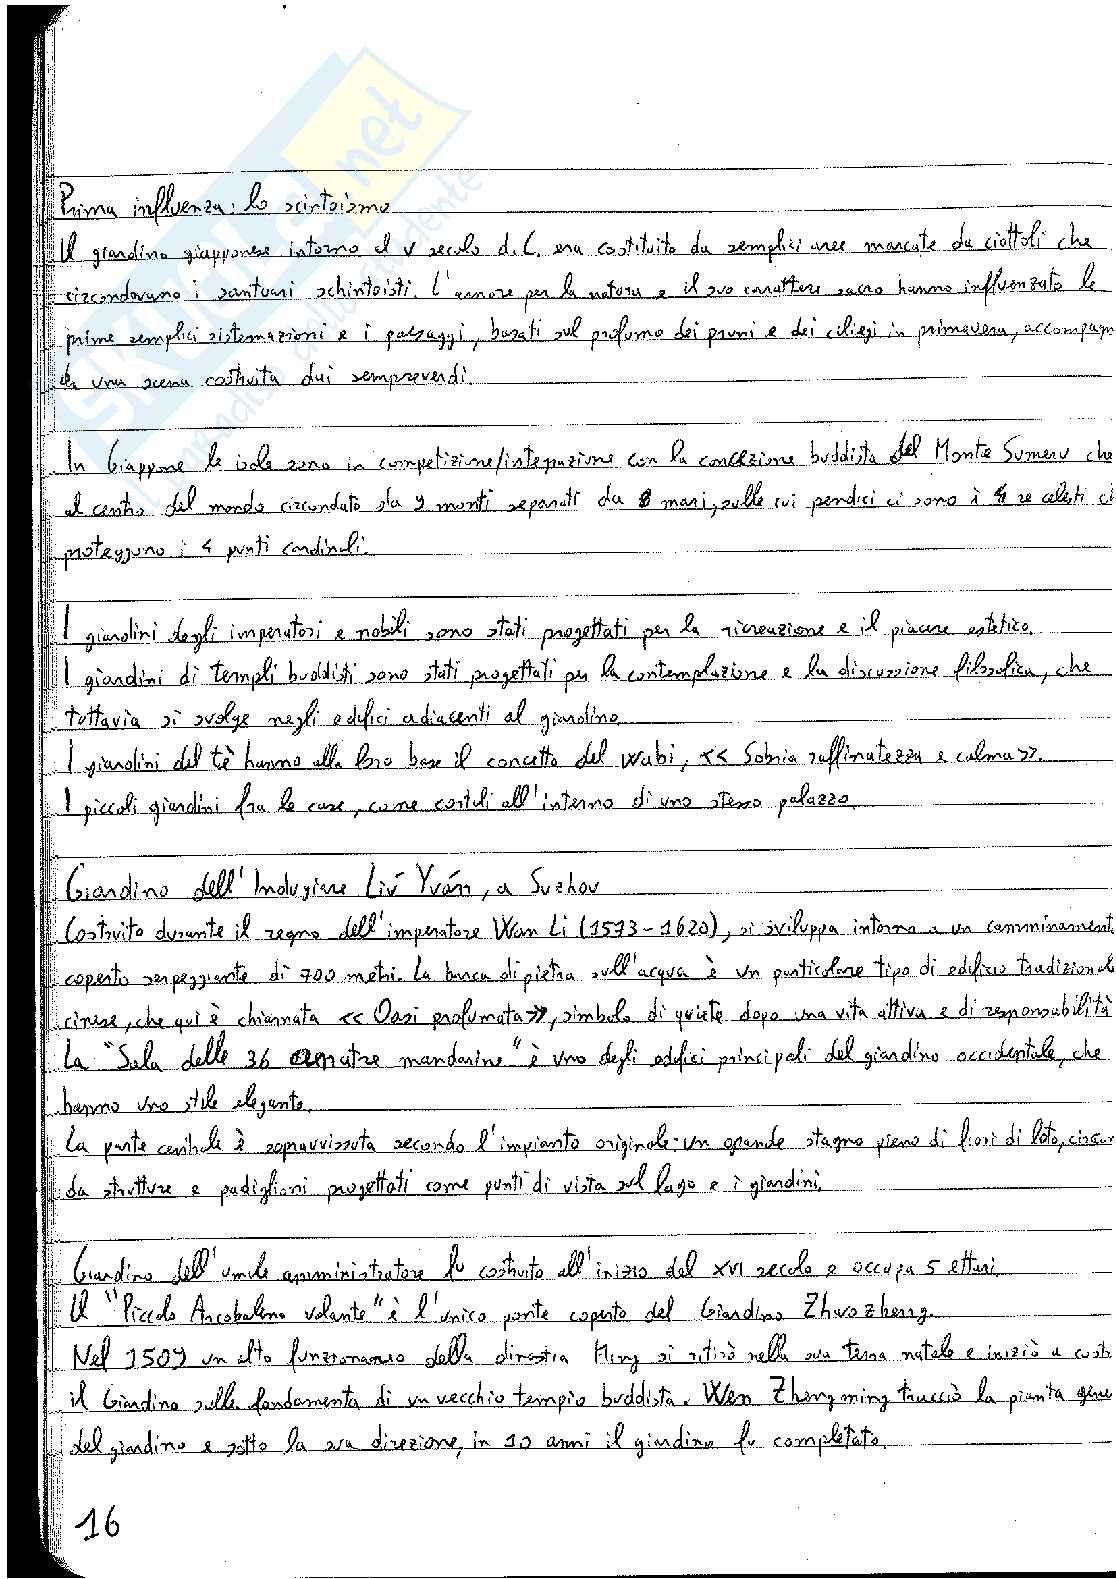 Prima influenza: lo scintoismo
Il giardino giapponese intorno al V secolo d.C. era costituito da semplici aree marcate da ciottoli che
circondavano i santuari schintoisti. L'amore per la natura e il suo carattere sacro hanno influenzato le
prime semplici sistemazioni e i paesaggi, basati sul profumo dei pruni e dei ciliegi in primavera, accompagn
da una scena costruita dai sempreverdi.
In Giappone le isole sono in competizione/integrazione con la concezione buddista del Monte Sumeru che
al centro del mondo circondato da 9 monti separati da 8 mari, sulle cui pendici ci sono i 4 re celesti ch
proteggono i 4 punti cardinali.
I giardini degli imperatori e nobili sono stati progettati per la ricreazione e il piacere estetico.
I giardini di templi buddisti sono stati progettati per la contemplazione e la discussione filosofica, che
tuttavia si svolge negli edifici adiacenti al giardino.
I giardini del tè hanno alla loro base il concetto del wabi, << Sobria raffinatezza e calma>>.
I piccoli giardini fra le case, come cortili all'interno di uno stesso palazzo.
Giardino dell'Indugiare Liú Yuán, a Suzhou
Costruito durante il regno dell'imperatore Wan Li (1573-1620), si sviluppa intorno a un camminament
coperto serpeggiante di 700 metri. La barca di pietra sull'acqua è un particolare tipo di edificio tradizional
cinese, che qui è chiamata << Oasi profumata>>, simbolo di quiete dopo una vita attiva e di responsabilità
La "Sala delle 36 anatre mandarine" è uno degli edifici principali del giardino occidentale, che
hanno uno stile elegante.
La parte centrale è sopravvissuta secondo l'impianto originale: un grande stagno pieno di fiori di loto, circon
da strutture e padiglioni progettati come punti di vista sul lago e i giardini.
Giardino dell'umile amministratore fu costruito all'inizio del XVI secolo e occupa 5 ettari.
Il "Piccolo Arcobaleno volante" è l'unico ponte coperto del Giardino Zhuozheng.
Nel 1509 un alto funzionario della dinastia Ming si ritirò nella sua terra natale e iniziò a costr
il Giardino sulle fondamenta di un vecchio tempio buddista. Wen Zhengming tracciò la pianta gene
del giardino e sotto la sua direzione, in 10 anni il giardino fu completato.
16